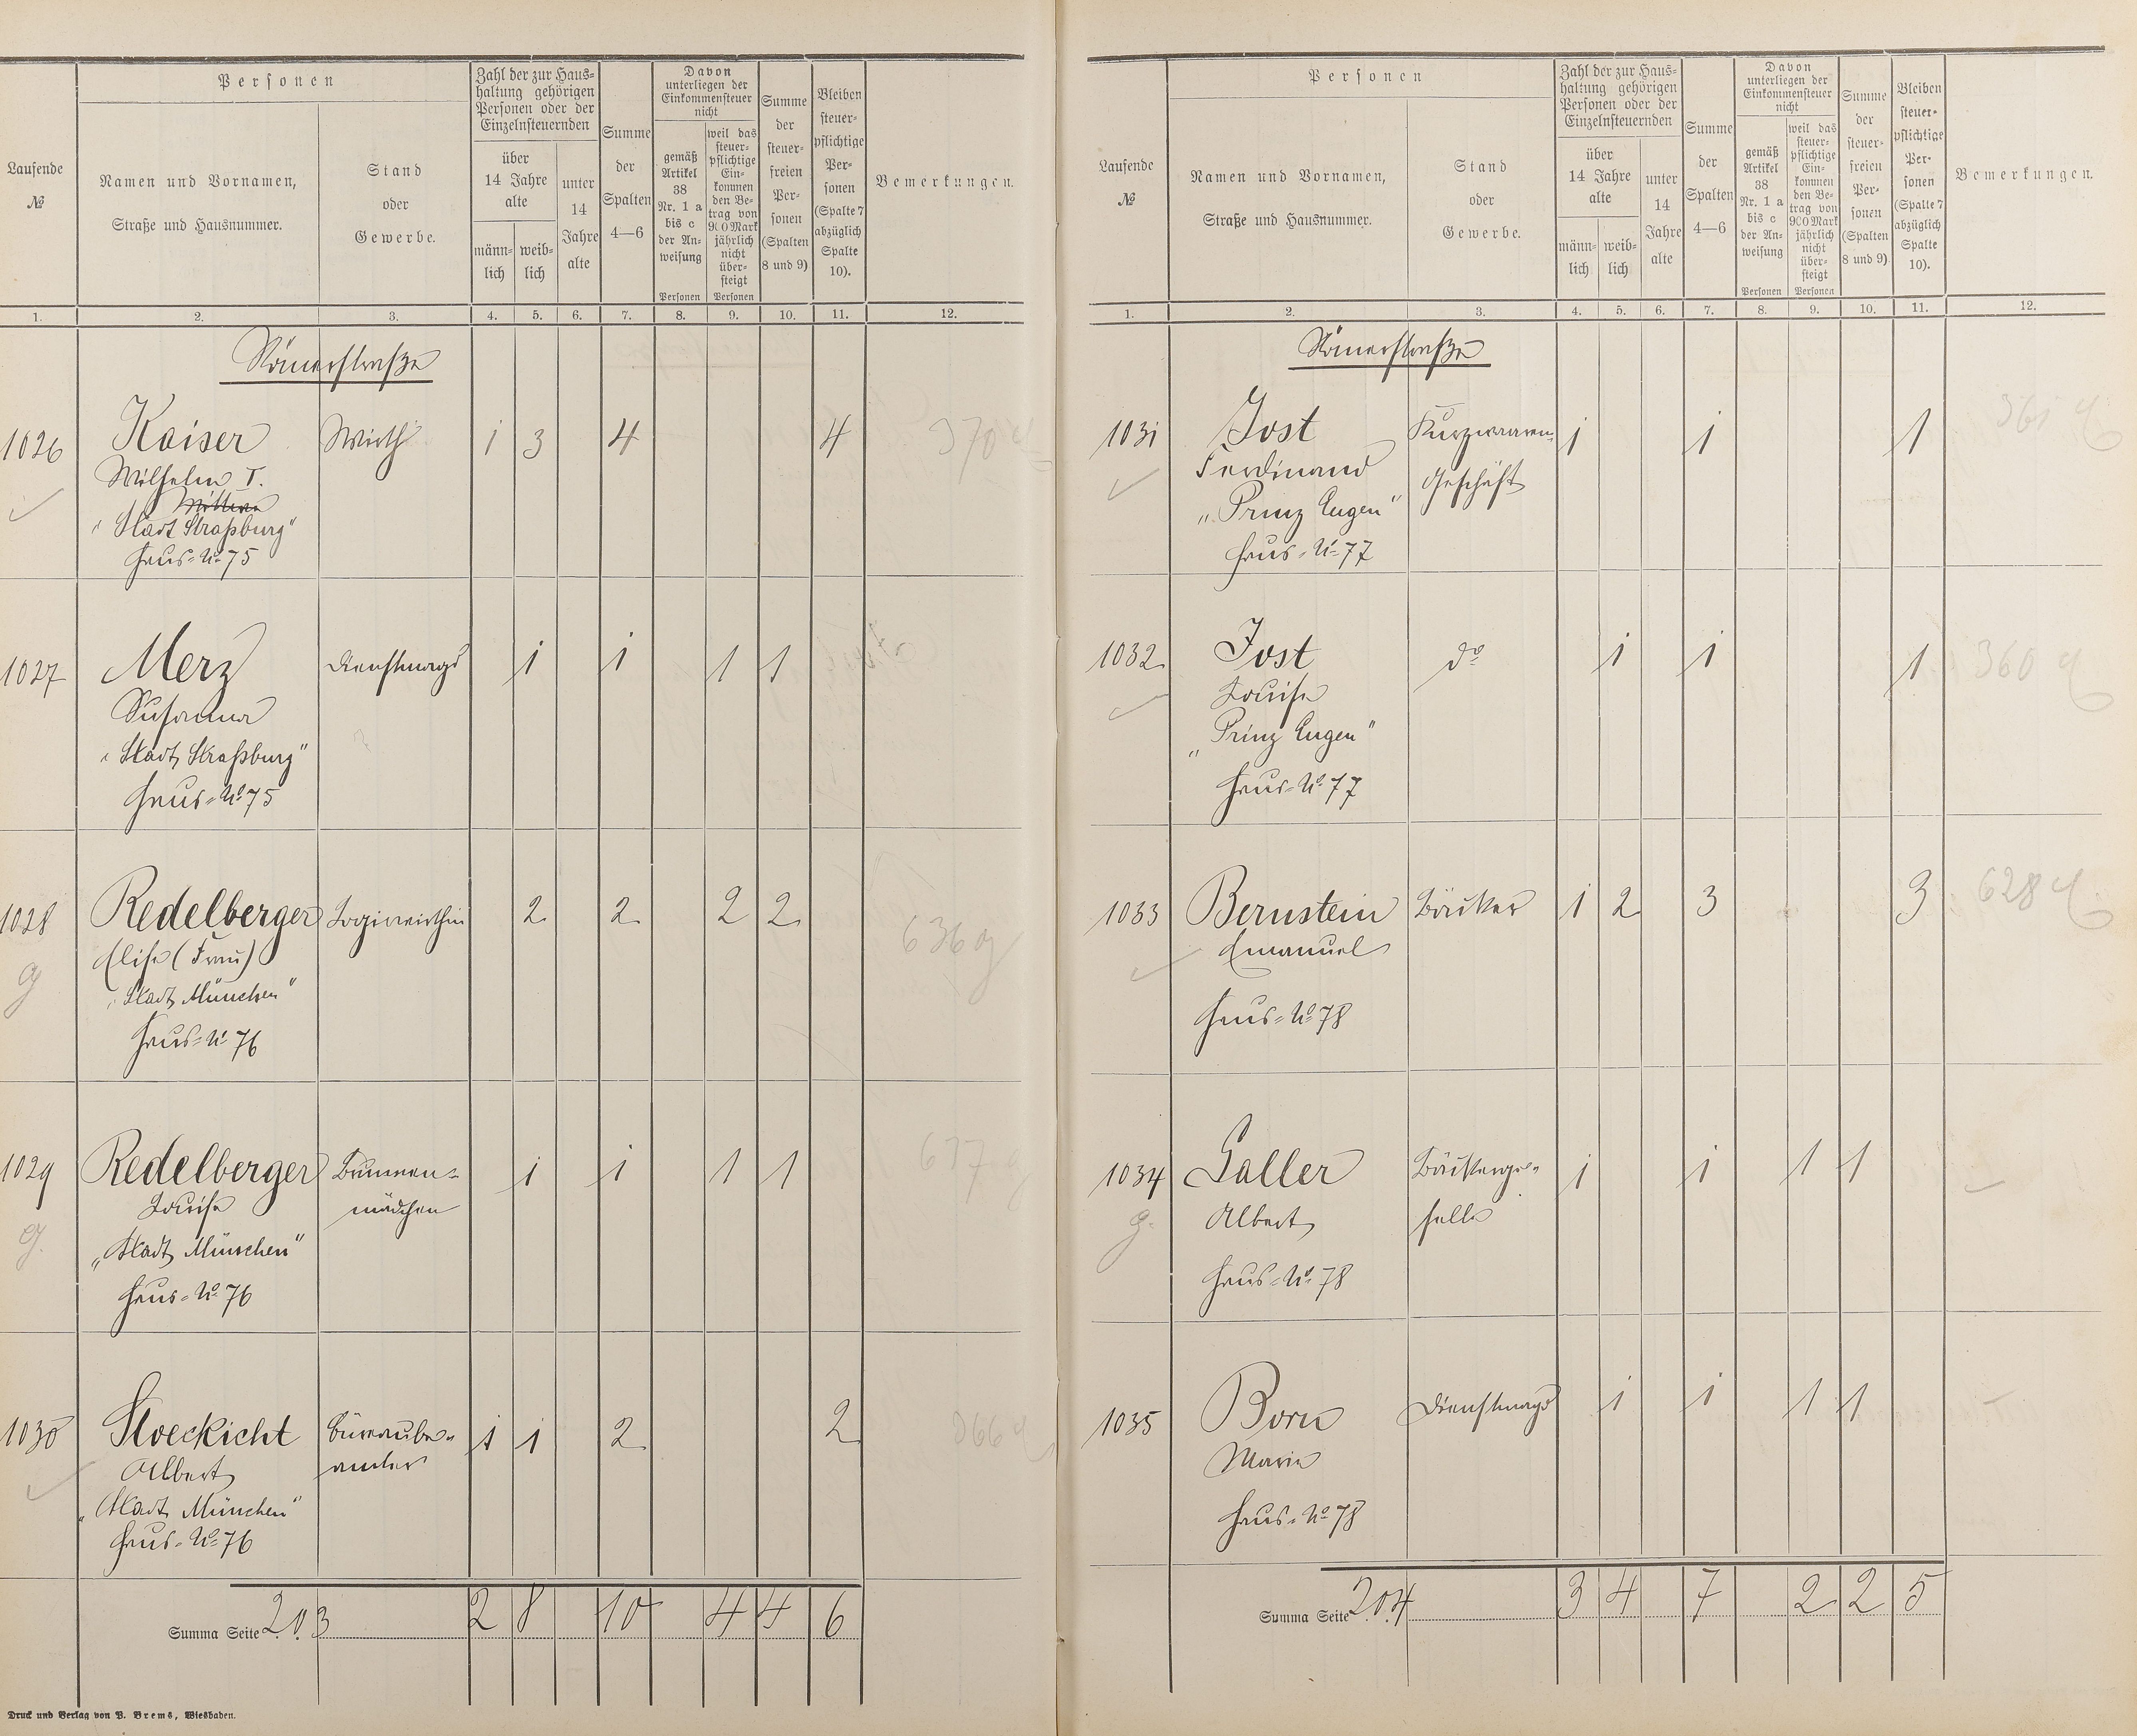 Laufende
№
Personen
Namen und Vornamen,
Straße und Hausnummer.
Stand
oder
Gewerbe.
Zahl der zur Haus-
haltung gehörigen
Personen oder der
Einzelnsteuernden
über
14 Jahre
alte
männ-
lich
weib-
lich
unter
14
Jahre
alte
Summe
der
Spalten
4—6
Davon
unterliegen der
Einkommensteuer
nicht
gemäß
Artikel
38
Nr. 1 a
bis c
der An-
weisung
Personen
weil das
steuer-
pflichtige
Ein-
kommen
den Be-
trag von
900 Mark
jährlich
nicht
über-
steigt
Personen
Summe
der
steuer-
freien
Per-
sonen
(Spalten
8 und 9)
Bleiben
steuer-
pflichtige
Per-
sonen
(Spalte 7
abzüglich
Spalte
10).
Bemerkungen.
1. 2. 3. 4. 5. 6. 7. 8. 9. 10. 11. 12.
Römerstraße
1026 Kaiser Wirth 1 3 4 4 370
Wilhelm I.
"Stadt Straßburg"
Haus-No 75
1027 Merz Dienstmagd 1 1 1 1
Susanna
"Stadt Straßburg"
Haus-No 75
1028 Redelberger Logirwirthin 2 2 2 2 636 g
Elise (Frau)
g
"Stadt München"
Haus-No 76
1029 Redelberger Brunnen- 1 1 1 1 637
Louise mädchen
g.
"Stadt München"
Haus-No 76
1030 Stoeckicht Büreaube- 1 1 2 2 366
Albert amter
"Stadt München"
Haus-No 76
Summa Seite 203 2 8 10 4 4 6
Druck und Verlag von P. Brems, Wiesbaden.
Laufende
№
Personen
Namen und Vornamen,
Straße und Hausnummer.
Stand
oder
Gewerbe.
Zahl der zur Haus-
haltung gehörigen
Personen oder der
Einzelnsteuernden
über
14 Jahre
alte
männ-
lich
weib-
lich
unter
14
Jahre
alte
Summe
der
Spalten
4—6
Davon
unterliegen der
Einkommensteuer
nicht
gemäß
Artikel
38
Nr. 1 a
bis c
der An-
weisung
Personen
weil das
steuer-
pflichtige
Ein-
kommen
den Be-
trag von
900 Mark
jährlich
nicht
über-
steigt
Personen
Summe
der
steuer-
freien
Per-
sonen
(Spalten
8 und 9)
Bleiben
steuer-
pflichtige
Per-
sonen
(Spalte 7
abzüglich
Spalte
10).
Bemerkungen.
1. 2. 3. 4. 5. 6. 7. 8. 9. 10. 11. 12.
Römerstraße
1031 Jost Kurzwaaren 1 1 1 361
Ferdinand Geschäft
"Prinz Eugen"
Haus-No 77
1032 Jost do 1 1 1 360
Louise
"Prinz Eugen"
Haus-No 77
1033 Bernstein Bäcker 1 2 3 3 628
Emanuel
Haus-No 78
1034 Saller Bäckerge- 1 1 1 1
Albert selle
g.
Haus-No 78
1035 Born Dienstmagd 1 1 1 1
Marie
Haus-No 78
Summa Seite 204 3 4 7 2 2 5